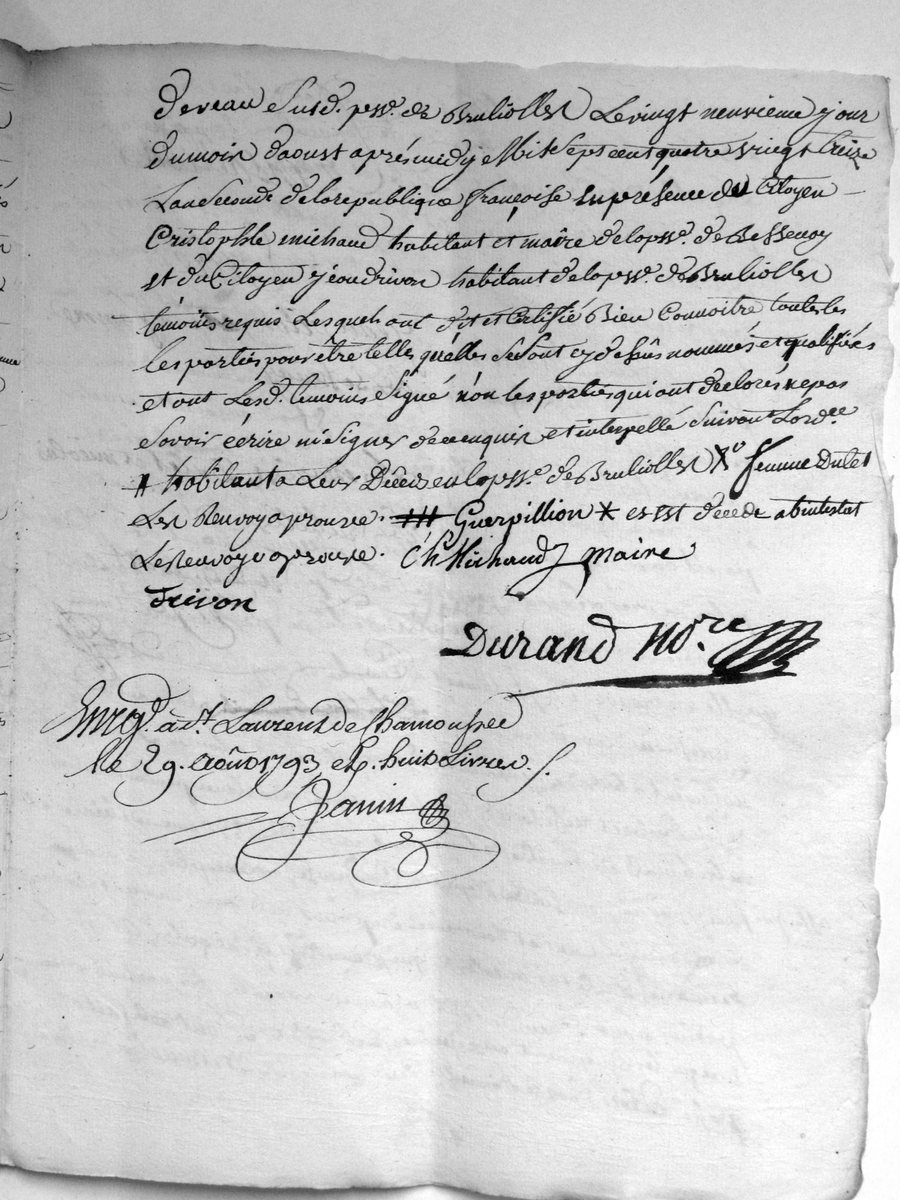 deveau susd. psse. de Bruliolles Le vingt neuvieme jour
du mois daoust aprés midy Mil sept cent quatre vingt treize
Lan Second de la republique françoise en présence du Citoyen
Cristophle michaud habitant et maire de la psse. de Bessenay
et du Citoyen jean drivon habitant de la psse. de Bruliolles
témoins requis Lesquels ont dit et Certifié Bien Connoitre toutes les
les parties pour être telles quelles se sont cy dessus nommés et qualifiées
et ont Lesd. temoins Signé non les parties qui ont declarés ne pas
savoir écrire ni signer de ce enquis et interpellé suivant Lordce
# habitant a Leur Décès en la psse. de Bruliolles X femme Dulet
Les Renvoy aprouve. ### Guerpillion * es est decede abintestat
Le Renvoy aprouve. Ch Michaud maire
Drivon
Durand Nore
Enrgd. à St. Laurent de Chamousset
le 29. Août 1793, R. huit Livres
Janin